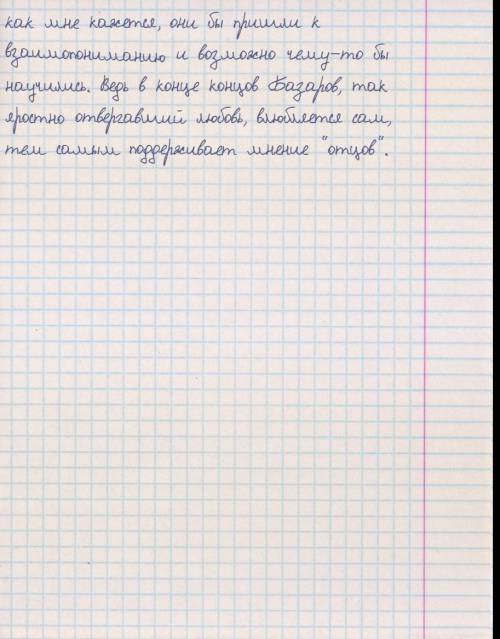 как мне кажется, они бы пришли к
взаимопониманию и возможно чему-то бы
научились. Ведь в конце концов Базаров, так
яростно отвергавший любовь, влюбляется сам,
тем самым поддерживает мнение "отцов".